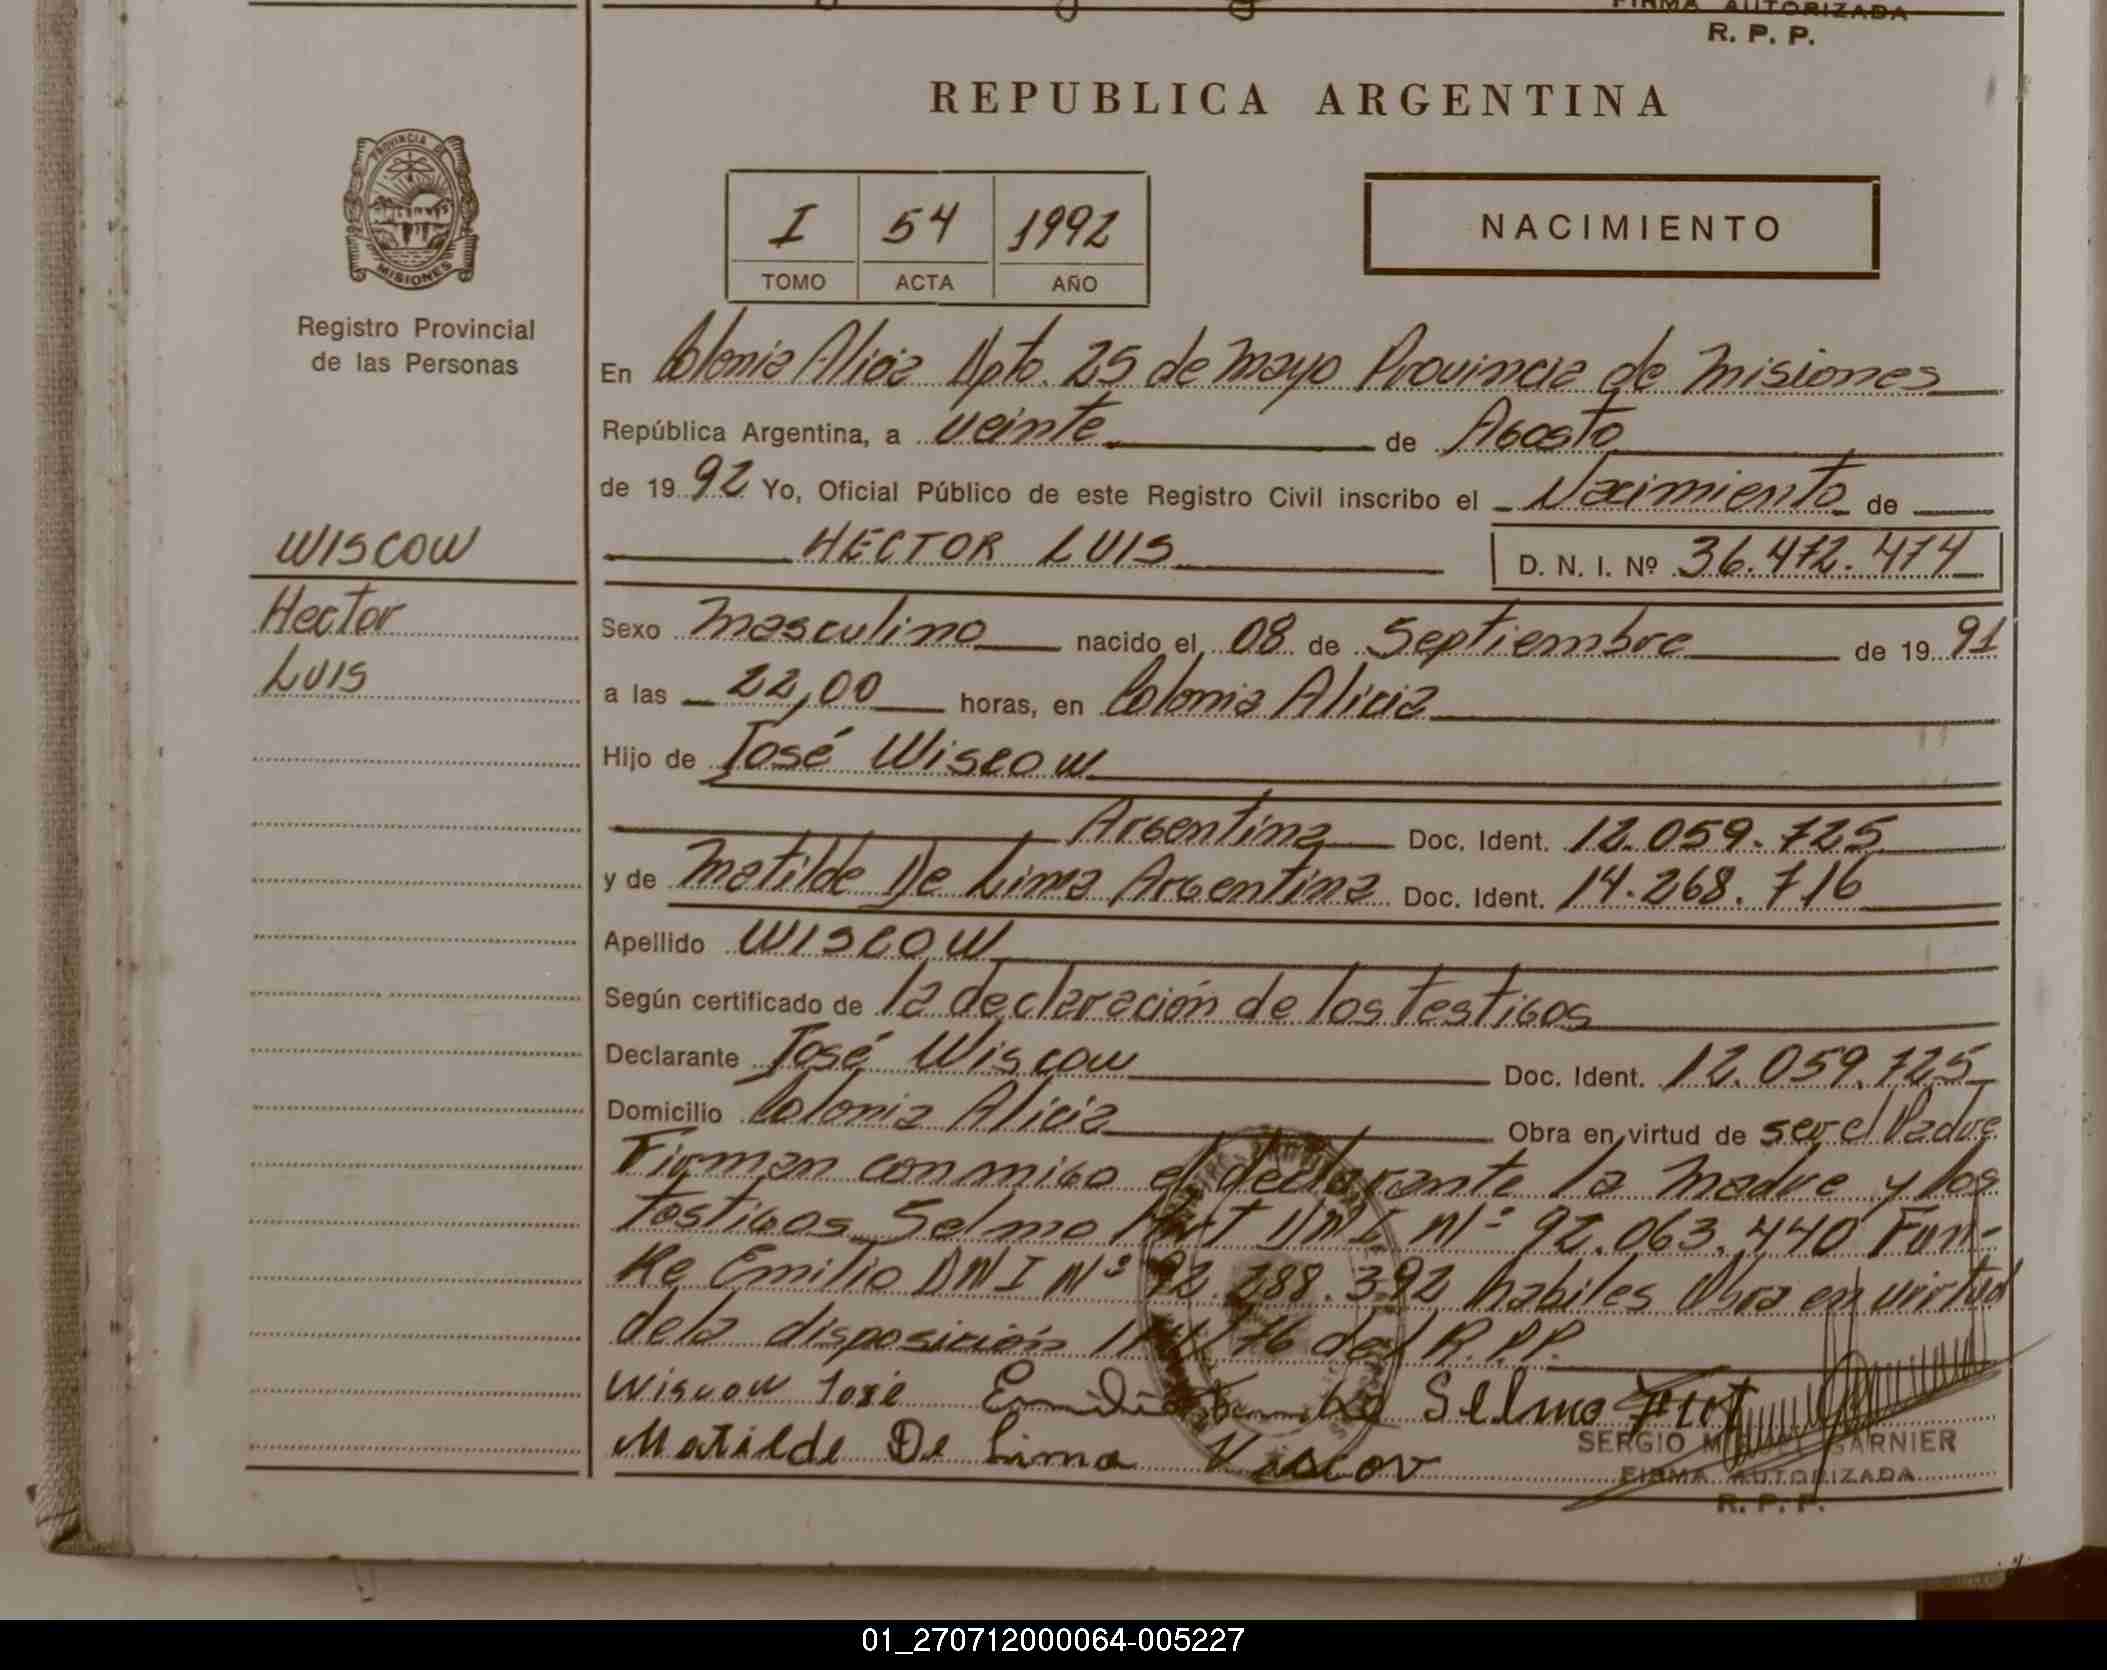 FIRMA AUTORIZADA
R. P. P.
REPUBLICA ARGENTINA
PROVINCIA DE
MISIONES
Registro Provincial
de las Personas
I 54 1992
TOMO ACTA AÑO
NACIMIENTO
En Colonia Alicia Dpto. 25 de Mayo Provincia de Misiones
República Argentina, a veinte de Agosto
de 1992 Yo, Oficial Público de este Registro Civil inscribo el Nacimiento de
WISCOW
HECTOR LUIS D. N. I. Nº 36.472.474
Hector
Luis
Sexo Masculino nacido el 08 de Septiembre de 1991
a las 22,00 horas, en Colonia Alicia
Hijo de José Wiscow
Argentina Doc. Ident. 12.059.725
y de Matilde De Lima Argentina Doc. Ident. 14.268.716
Apellido WISCOW
Según certificado de la declaración de los testigos
Declarante José Wiscow Doc. Ident. 12.059.725
Domicilio Colonia Alicia Obra en virtud de ser el Padre
Firman conmigo el declarante la Madre y los
testigos Selmo DNI Nº 92.063.440 Fun-
ke Emilio DNI Nº 92.288.392 habiles Obra en virtud
de la disposición 76 del R.P.P.
Wiscow José Emilio Funke Selmo
Matilde De Lima Viscov
SERGIO GARNIER
FIRMA AUTORIZADA
R. P. P.
01_270712000064-005227